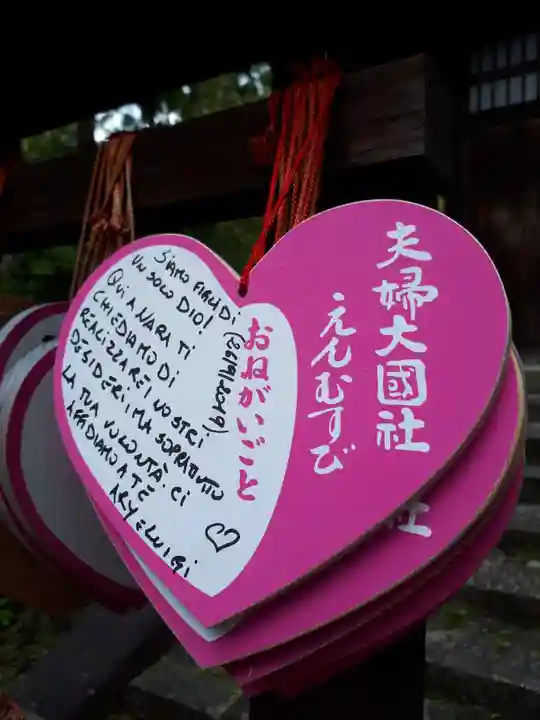 夫婦大國社
えんむすび
おねがいごと
SIAMO FIGLI DI
UN SOLO DIO!
(26/9/2019)
QUI A NARA TI
CHIEDIAMO DI
REALIZZARE I NOSTRI
DESIDERI MA SOPRATTUTTO
LA TUA VOLONTÀ. CI
AFFIDIAMO A TE
ARY e LUIGI
社